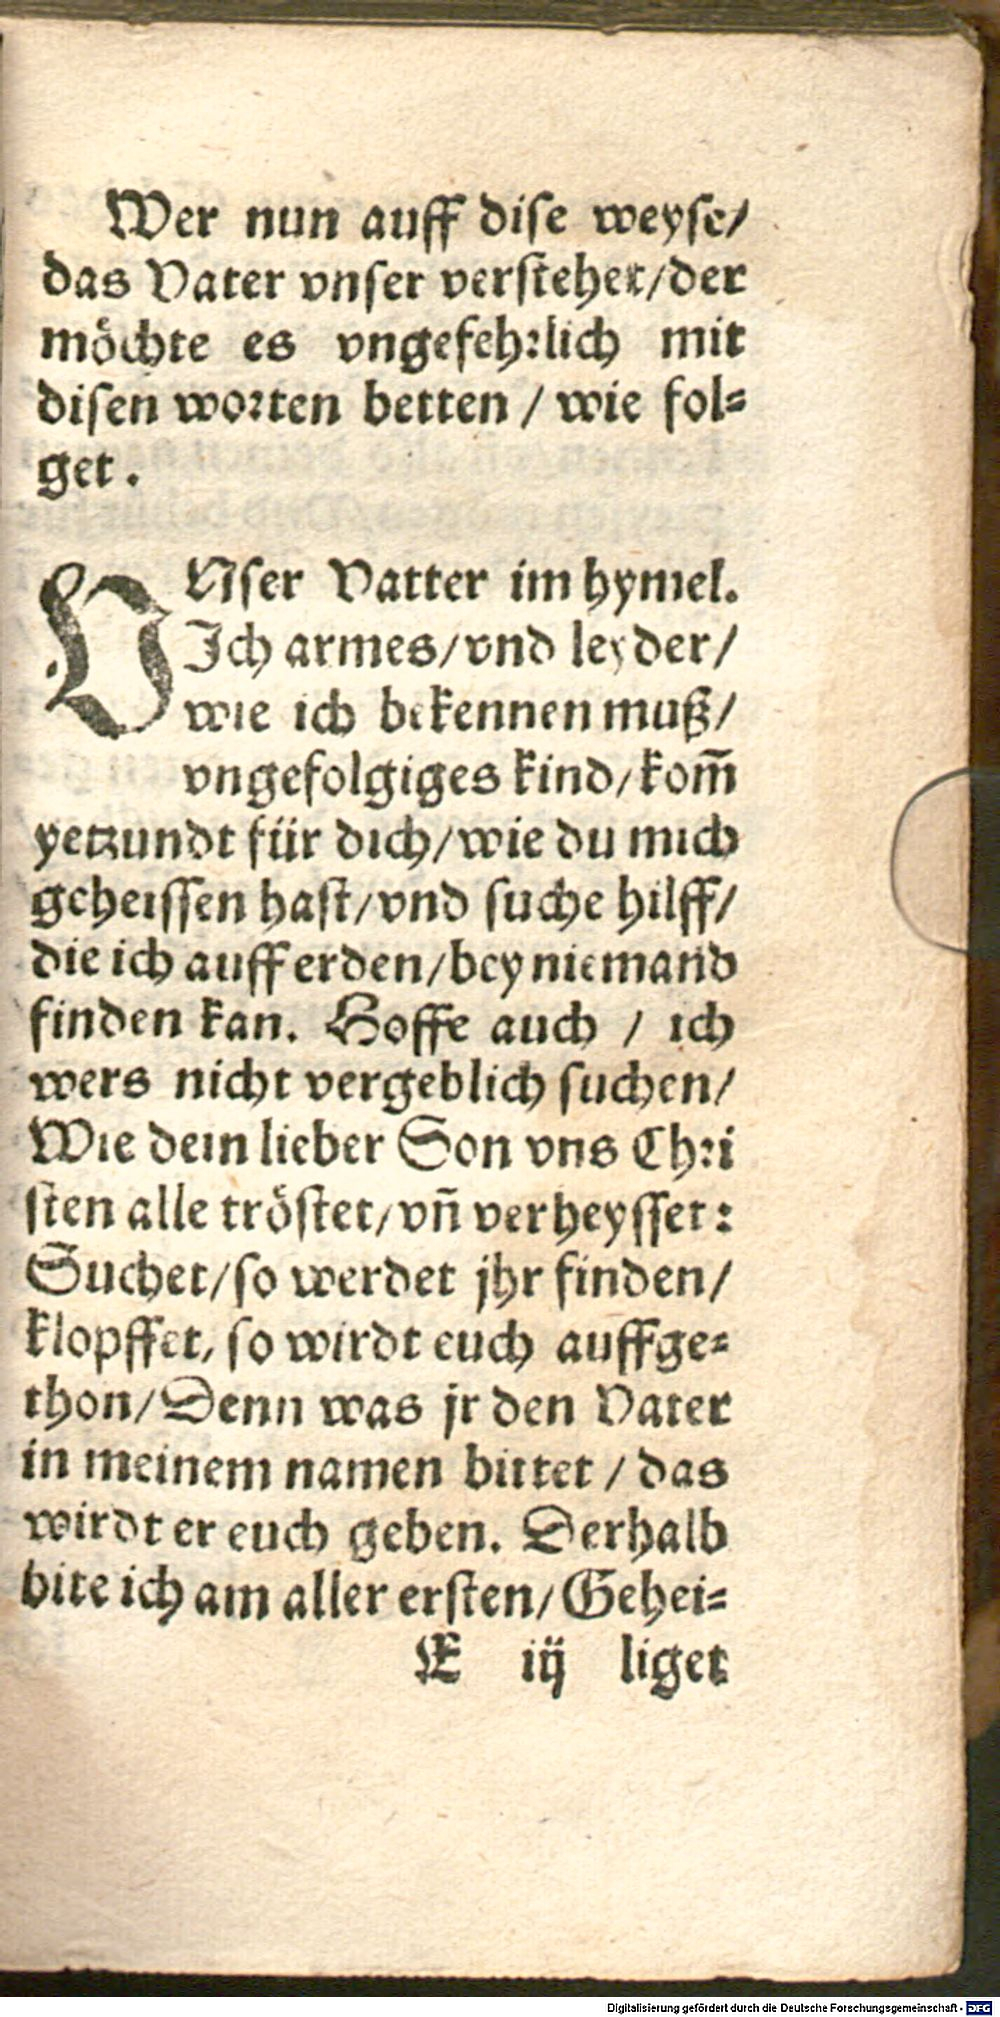 Wer nun auff dise weyse/
das Vater vnser verstehet/der
möchte es vngefehrlich mit
disen worten betten / wie fol⸗
get.
VNser Vatter im hymel.
Ich armes/vnd leyder/
wie ich bekennen muß/
vngefolgiges kind/kom̃
yetzundt für dich/wie du mich
geheissen hast/vnd suche hilff/
die ich auff erden/bey niemand
finden kan. Hoffe auch / ich
wers nicht vergeblich suchen/
Wie dein lieber Son vns Chri
sten alle tröstet/vñ verheysset:
Suchet/so werdet jhr finden/
klopffet, so wirdt euch auffge⸗
thon/Denn was jr den Vater
in meinem namen bittet / das
wirdt er euch geben. Derhalb
bite ich am aller ersten/Gehei⸗
E iij liget
Digitalisierung gefördert durch die Deutsche Forschungsgemeinschaft - DFG